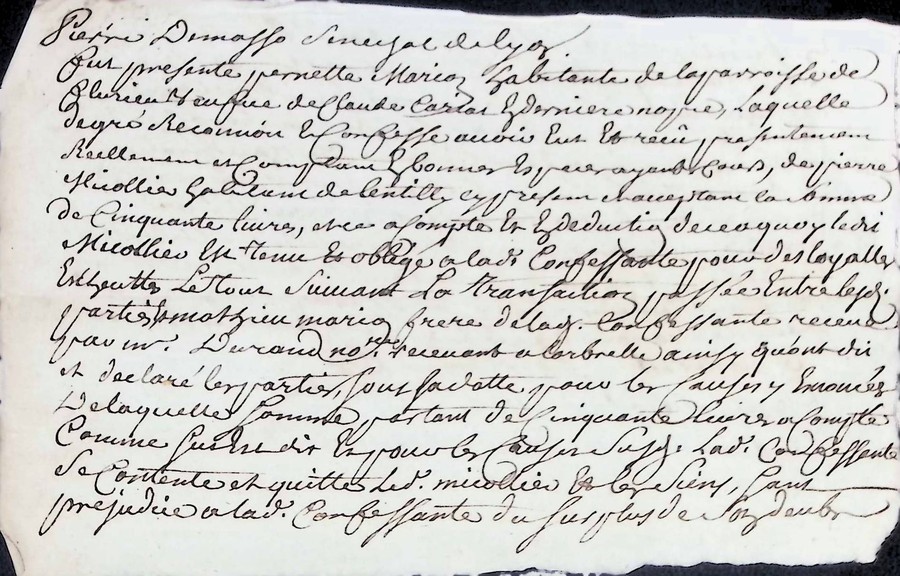 Pierre Demasso Senechal de Lyon
fut presente pernette Marion habitante de la parroisse de
fleurieu veufve de Claude Carlat En derniere nopce, Laquelle
de gré Reconnou Et Confesse avoir Eut Et reçu presentement
Reellement et Comptant En bonnes Especes ayant Cours, de pierre
Micollier habitant de lentilly cy present et acceptant la somme
de Cinquante livres, et ce a Compte Et En deduction de ce a quoy ledit
Micollier Est tenu Et obligé a lad. Confessante pour des loyalles
Le tout Suivant La transaction passée Entre lesd.
parties mathieu marion frere de lad. Confessante receue
par mr. Durand nore. recevant a larbrelle ainsy qu'ont dit
et declaré les parties, sous sa datte pour les Causes y Enoncées
De laquelle somme partant de Cinquante livres a Compte
Comme susd dit Et pour les Causes Susd. Lad. Confessante
Se Contente et quitte led. micollier Et les Siens, sans
préjudice a lad. Confessante du surplus de Son deub